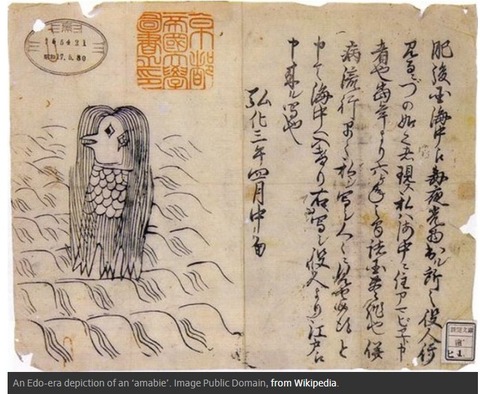 京都
帝國大學
圖書之印
肥後国海中え毎夜光物出ル所之役人行
見るニづの如く者現ス私ハ海中ニ住アマビヱト申
者也当年より六ヶ年之間諸国豊作也併
病流行早々私ヲ写シ人々ニ見せ候得と
申て海中へ入けり右写シ役人より江戸え
申来ル写也
弘化三年四月中旬
An Edo-era depiction of an ‘amabie’. Image Public Domain, from Wikipedia.